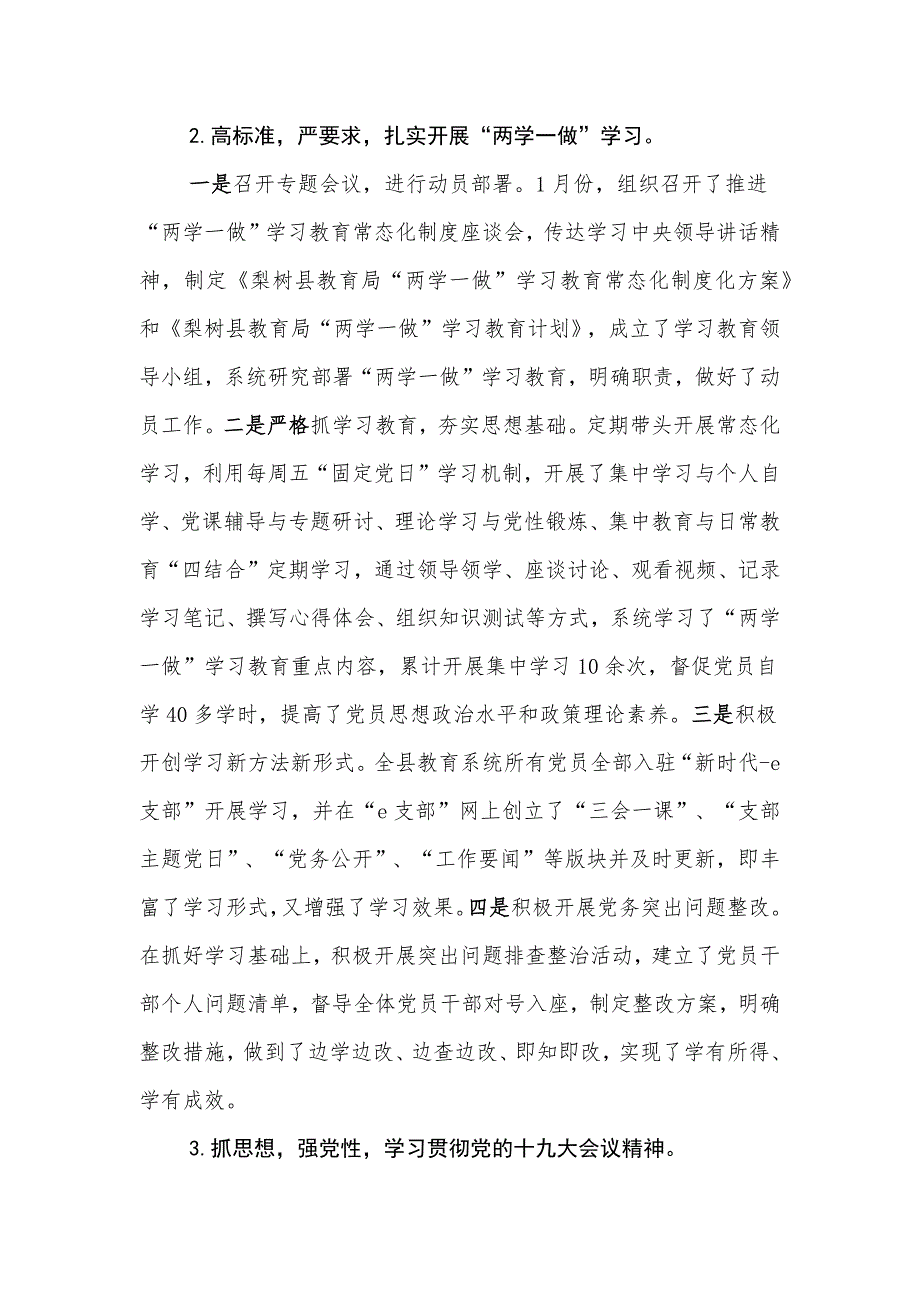 2.高标准，严要求，扎实开展“两学一做”学习。
一是召开专题会议，进行动员部署。1月份，组织召开了推进
“两学一做”学习教育常态化制度座谈会，传达学习中央领导讲话精
神，制定《梨树县教育局“两学一做”学习教育常态化制度化方案》
和《梨树县教育局“两学一做”学习教育计划》，成立了学习教育领
导小组，系统研究部署“两学一做”学习教育，明确职责，做好了动
员工作。二是严格抓学习教育，夯实思想基础。定期带头开展常态化
学习，利用每周五“固定党日”学习机制，开展了集中学习与个人自
学、党课辅导与专题研讨、理论学习与党性锻炼、集中教育与日常教
育“四结合”定期学习，通过领导领学、座谈讨论、观看视频、记录
学习笔记、撰写心得体会、组织知识测试等方式，系统学习了“两学
一做”学习教育重点内容，累计开展集中学习10余次，督促党员自
学40多学时，提高了党员思想政治水平和政策理论素养。三是积极
开创学习新方法新形式。全县教育系统所有党员全部入驻“新时代-e
支部”开展学习，并在“e支部”网上创立了“三会一课”、“支部
主题党日”、“党务公开”、“工作要闻”等版块并及时更新，即丰
富了学习形式，又增强了学习效果。四是积极开展党务突出问题整改。
在抓好学习基础上，积极开展突出问题排查整治活动，建立了党员干
部个人问题清单，督导全体党员干部对号入座，制定整改方案，明确
整改措施，做到了边学边改、边查边改、即知即改，实现了学有所得、
学有成效。
3.抓思想，强党性，学习贯彻党的十九大会议精神。